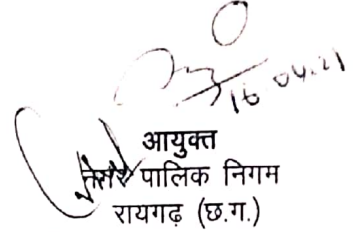 16.04.21
आयुक्त
पालिक निगम
रायगढ़ (छ.ग.)